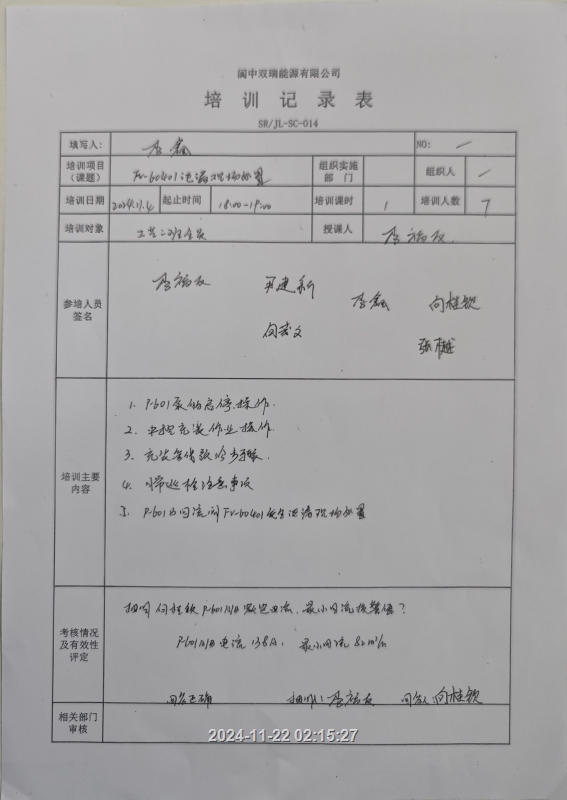 阆中双瑞能源有限公司
培训记录表
SR/JL-SC-014
填写人： 李鑫 NO: —
培训项目（课题） FV-60401泄漏现场处置 组织实施部门 组织人 —
培训日期 2024.11.4 起止时间 18:00-19:00 培训课时 1 培训人数 7
培训对象 工艺二班全员 授课人 李福友
参培人员签名
李福友 李鑫 向桂钦
张越
培训主要内容
1. P-601泵的启停操作.
2. 充装作业操作
3. 充装 步骤.
4. 日常巡检注意事项
5. P-601 回流阀FV-60401发生泄漏现场处置
考核情况及有效性评定
抽问 向桂钦 P-601A/B 额定电流、最小回流报警值？
P-601A/B 电流 138A， 最小回流 82m³/h
回答正确 抽问人：李福友 回答人 向桂钦
相关部门审核
2024-11-22 02:15:27